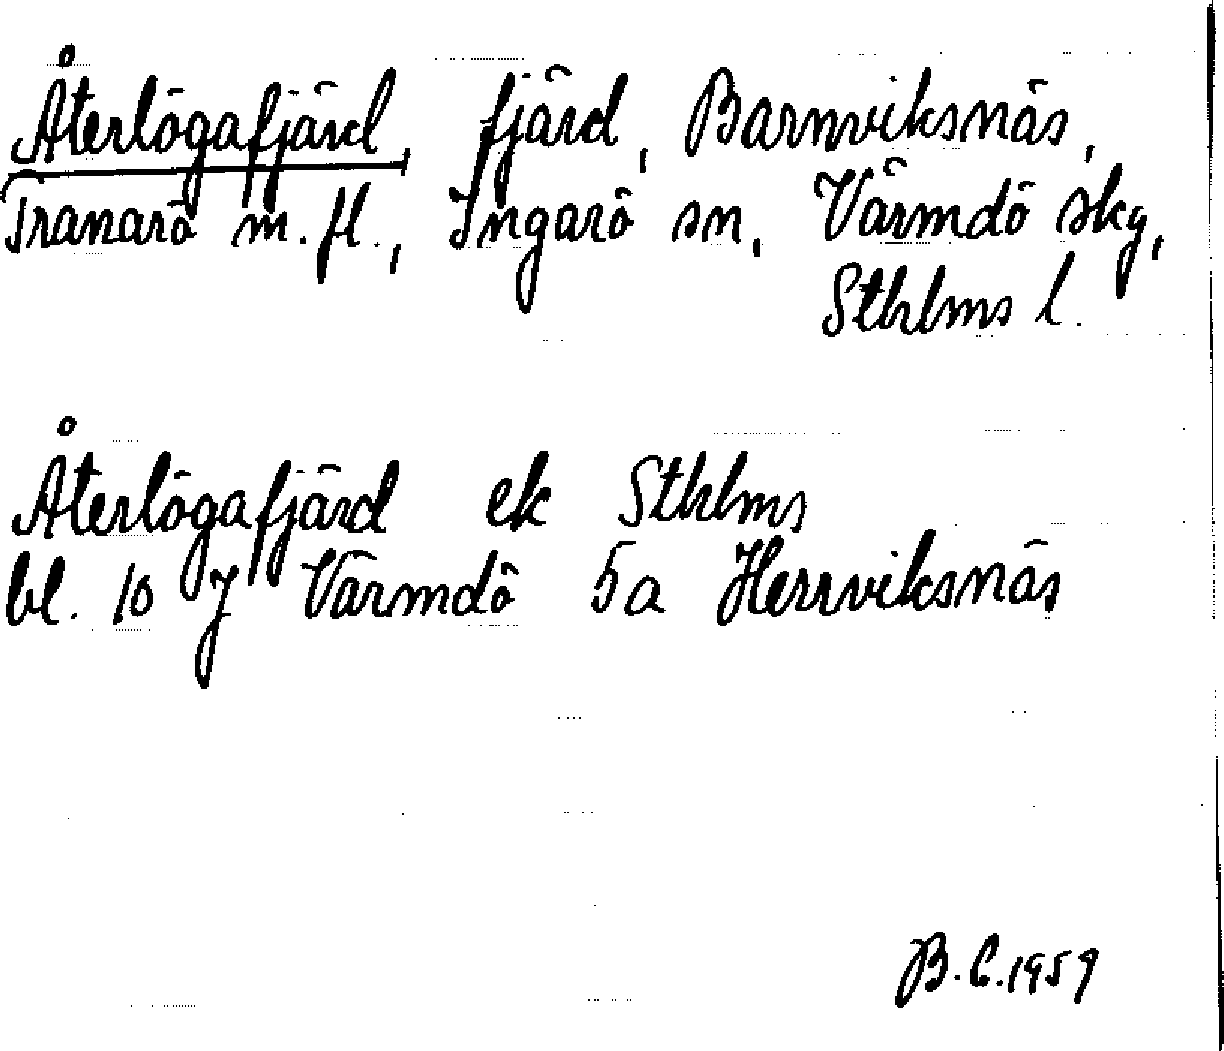 Återlögafjärd, fjärd, Barnviksnäs,
Tranarö m.fl., Ingarö sn, Värmdö skg,
Sthlms l.
Återlögafjärd ek Sthlms
bl. 10 J Värmdö 5a Herrviksnäs
B.C. 1959